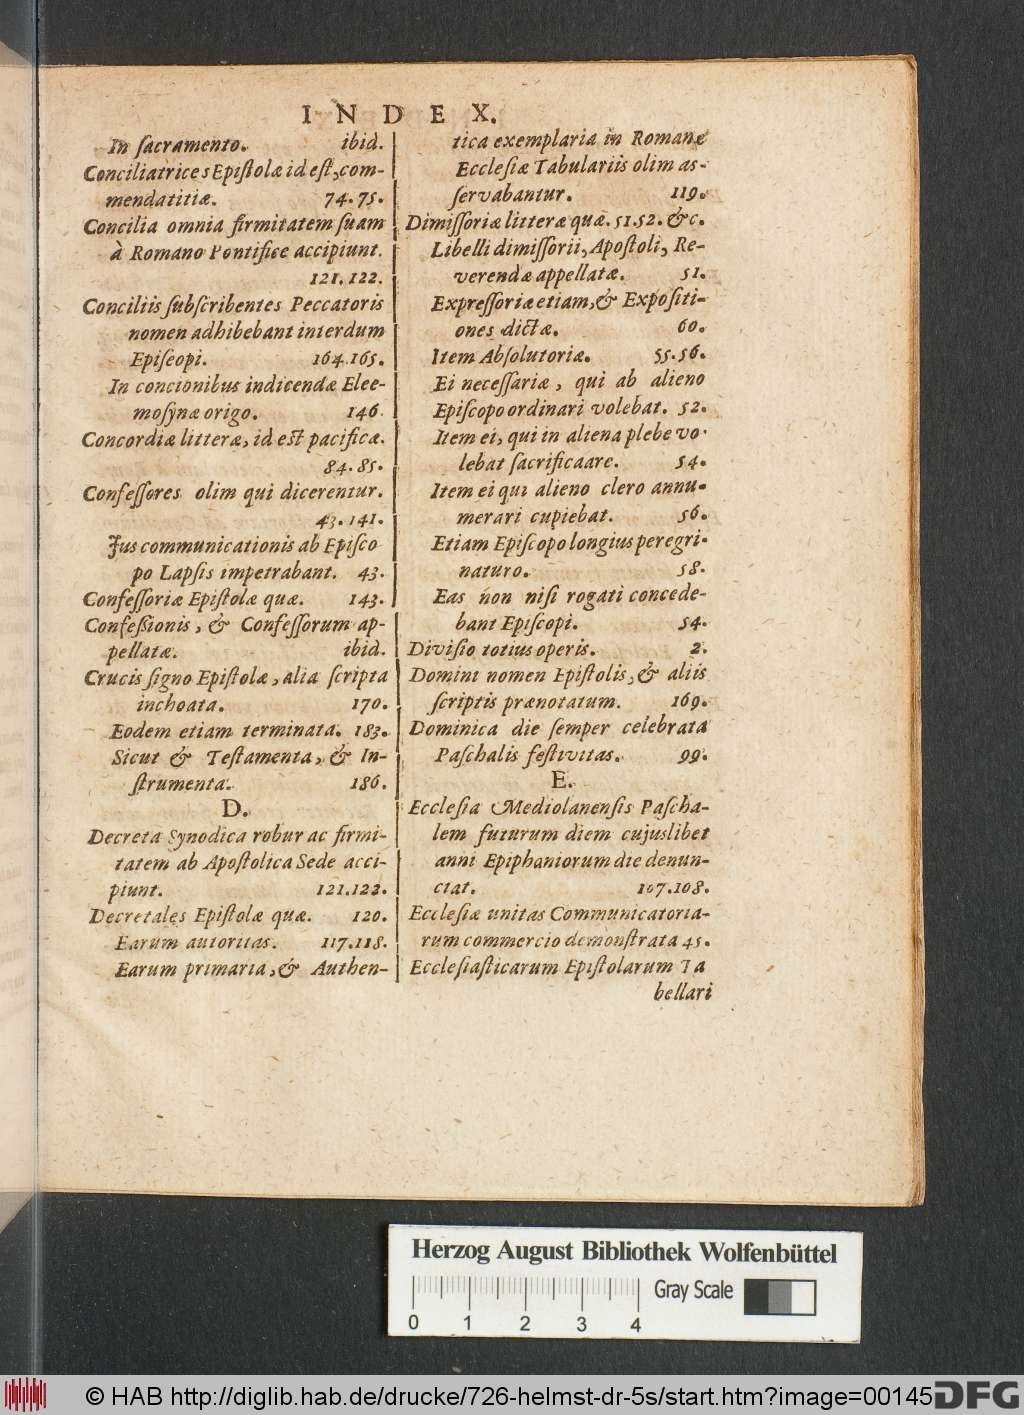 INDEX.
In ſacramento. ibid.
Conciliatrices Epiſtolæ id eſt, com-
mendatitiæ. 74.75.
Concilia omnia firmitatem ſuam
à Romano Pontifice accipiunt.
121.122.
Conciliis ſubſcribentes Peccatoris
nomen adhibebant interdum
Epiſcopi. 164.165.
In concionibus indicendæ Elee-
moſynæ origo. 146.
Concordiæ litteræ, id eſt pacificæ.
84.85.
Confeſſores olim qui dicerentur.
43.141.
Jus communicationis ab Epiſco
po Lapſis impetrabant. 43.
Confeſſoriæ Epiſtolæ quæ. 143.
Confeſſionis, & Confeſſorum ap-
pellatæ. ibid.
Crucis ſigno Epiſtolæ, alia ſcripta
inchoata. 170.
Eodem etiam terminata. 183.
Sicut & Teſtamenta, & In-
ſtrumenta. 186.
D.
Decreta Synodica robur ac firmi-
tatem ab Apoſtolica Sede acci-
piunt. 121.122.
Decretales Epiſtolæ quæ. 120.
Earum autoritas. 117.118.
Earum primaria, & Authen-
tica exemplaria in Romanæ
Eccleſiæ Tabulariis olim as-
ſervabantur. 119.
Dimiſſoriæ litteræ quæ. 51.52. &c.
Libelli dimiſſorii, Apoſtoli, Re-
verendæ appellatæ. 51.
Expreſſoriæ etiam, & Expoſiti-
ones dictæ. 60.
Item Abſolutoriæ. 55.56.
Ei neceſſariæ, qui ab alieno
Epiſcopo ordinari volebat. 52.
Item ei, qui in aliena plebe vo-
lebat ſacrificaare. 54.
Item ei qui alieno clero annu-
merari cupiebat. 56.
Etiam Epiſcopo longius peregri-
naturo. 58.
Eas non niſi rogati concede-
bant Epiſcopi. 54.
Diviſio totius operis. 2.
Domini nomen Epiſtolis, & aliis
ſcriptis prænotatum. 169.
Dominica die ſemper celebrata
Paſchalis feſtivitas. 99.
E.
Eccleſia Mediolanenſis Paſcha-
lem futurum diem cujuslibet
anni Epiphaniorum die denun-
ciat. 107.108.
Eccleſiæ unitas Communicatoria-
rum commercio demonſtrata 45.
Eccleſiaſticarum Epiſtolarum Ta
bellari
Herzog August Bibliothek Wolfenbüttel
Gray Scale
0 1 2 3 4
© HAB http://diglib.hab.de/drucke/726-helmst-dr-5s/start.htm?image=00145
DFG